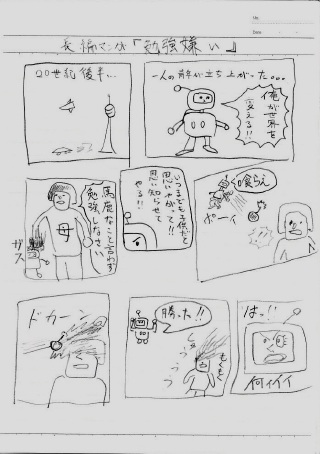 No.
Date
長編マンガ『勉強嫌い』
20世紀後半…
一人の青年が立ち上がった…
俺が世界を
変える!!
馬鹿なこと言わず
勉強しなさい
母
ガス
いつまでも子供だと
思いやがって!!
思い知らせて
やる!!
喰らえ
ポーイ
ドカーン
勝った!!
もくもく
しゅうぅぅ
はっ!!
何ィイイ